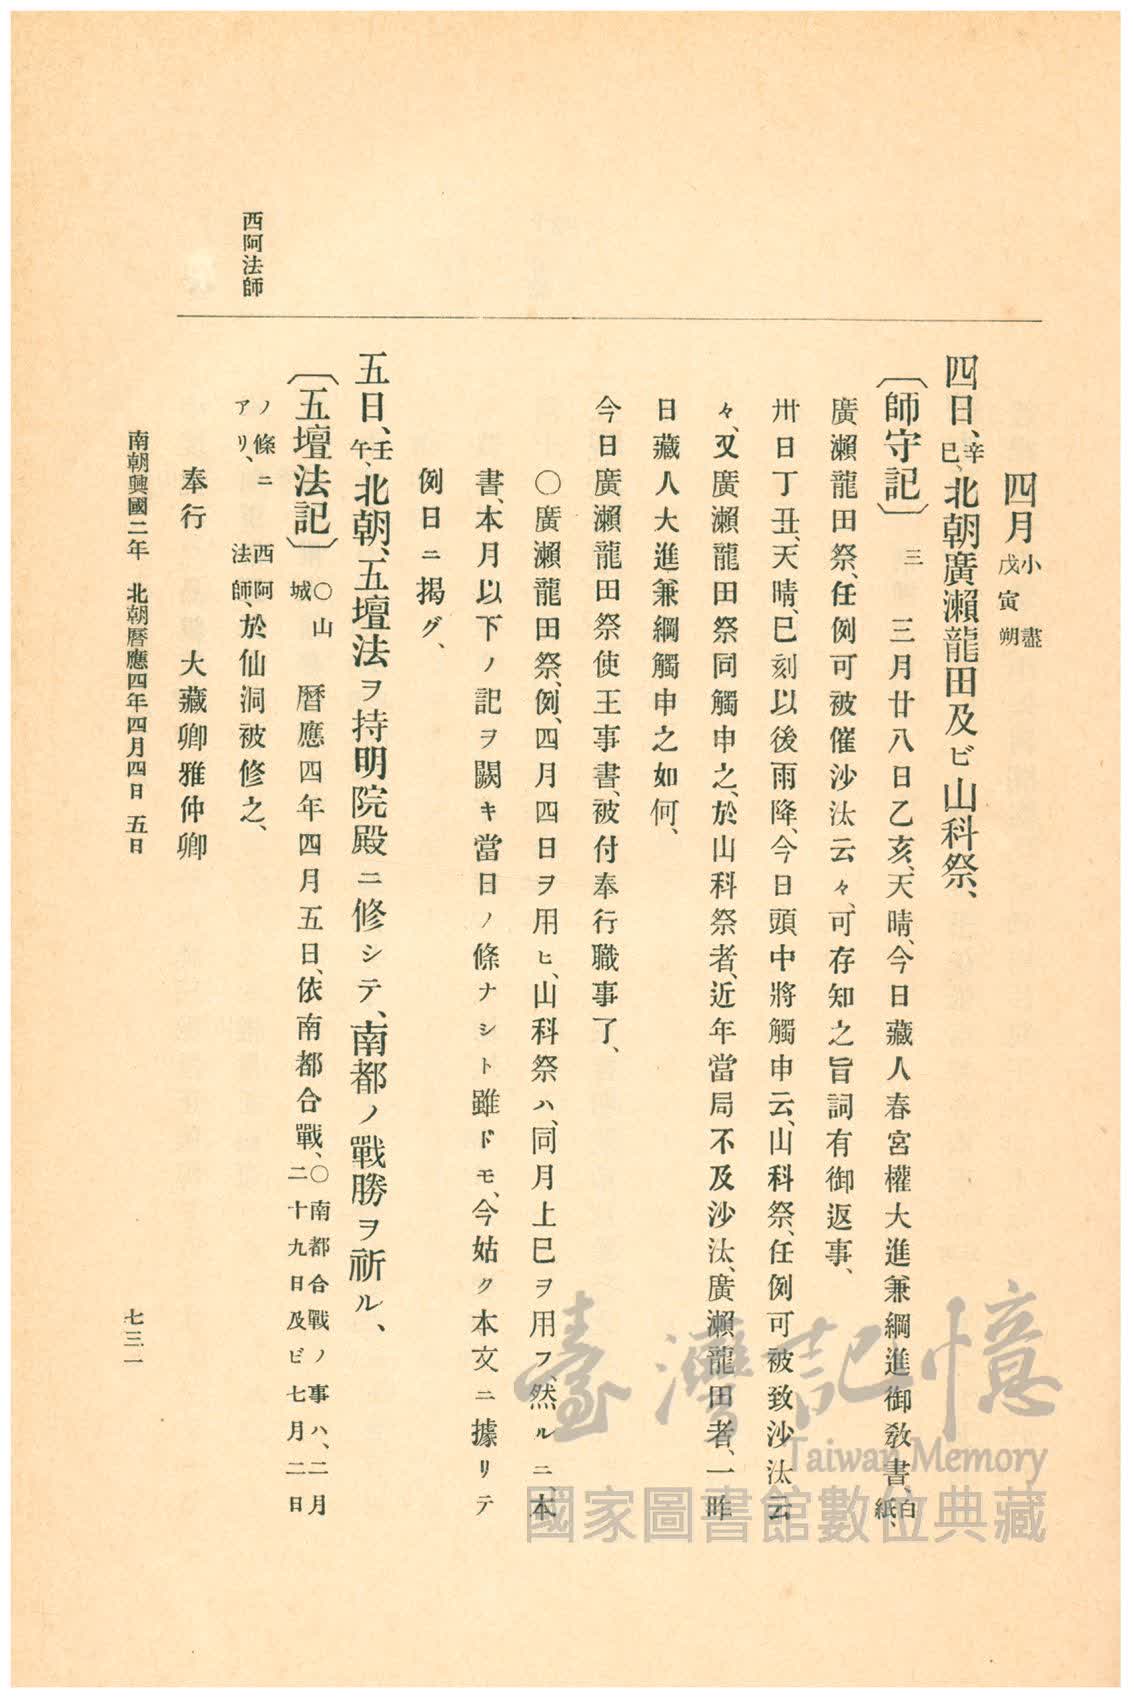 四月小盡戊寅朔
四日、辛巳、北朝廣瀨龍田及ビ山科祭、
〔師守記〕三 三月廿八日乙亥、天晴、今日藏人春宮權大進兼綱進御敎書、白紙、
廣瀨龍田祭、任例可被催沙汰云々、可存知之旨詞有御返事、
卅日丁丑、天晴、巳刻以後雨降、今日頭中將觸申云、山科祭、任例可被致沙汰云
々、又廣瀨龍田祭同觸申之、於山科祭者、近年當局不及沙汰、廣瀨龍田者、一昨
日藏人大進兼綱觸申之如何、
今日廣瀨龍田祭使王事書、被付奉行職事了、
〇廣瀨龍田祭、例、四月四日ヲ用ヒ、山科祭ハ、同月上巳ヲ用フ、然ルニ、本
書、本月以下ノ記ヲ闕キ當日ノ條ナシト雖ドモ、今姑ク本文ニ據リテ
例日ニ揭グ、
五日、壬午、北朝、五壇法ヲ持明院殿ニ修シテ、南都ノ戰勝ヲ祈ル、
西阿法師
〔五壇法記〕〇山城 曆應四年四月五日、依南都合戰、〇南都合戰ノ事ハ、二月二十九日及ビ七月二日
ノ條ニアリ、西阿法師、於仙洞被修之、
奉行 大藏卿雅仲卿
南朝興國二年 北朝曆應四年四月四日 五日
七三一
臺灣記憶
Taiwan Memory
國家圖書館數位典藏